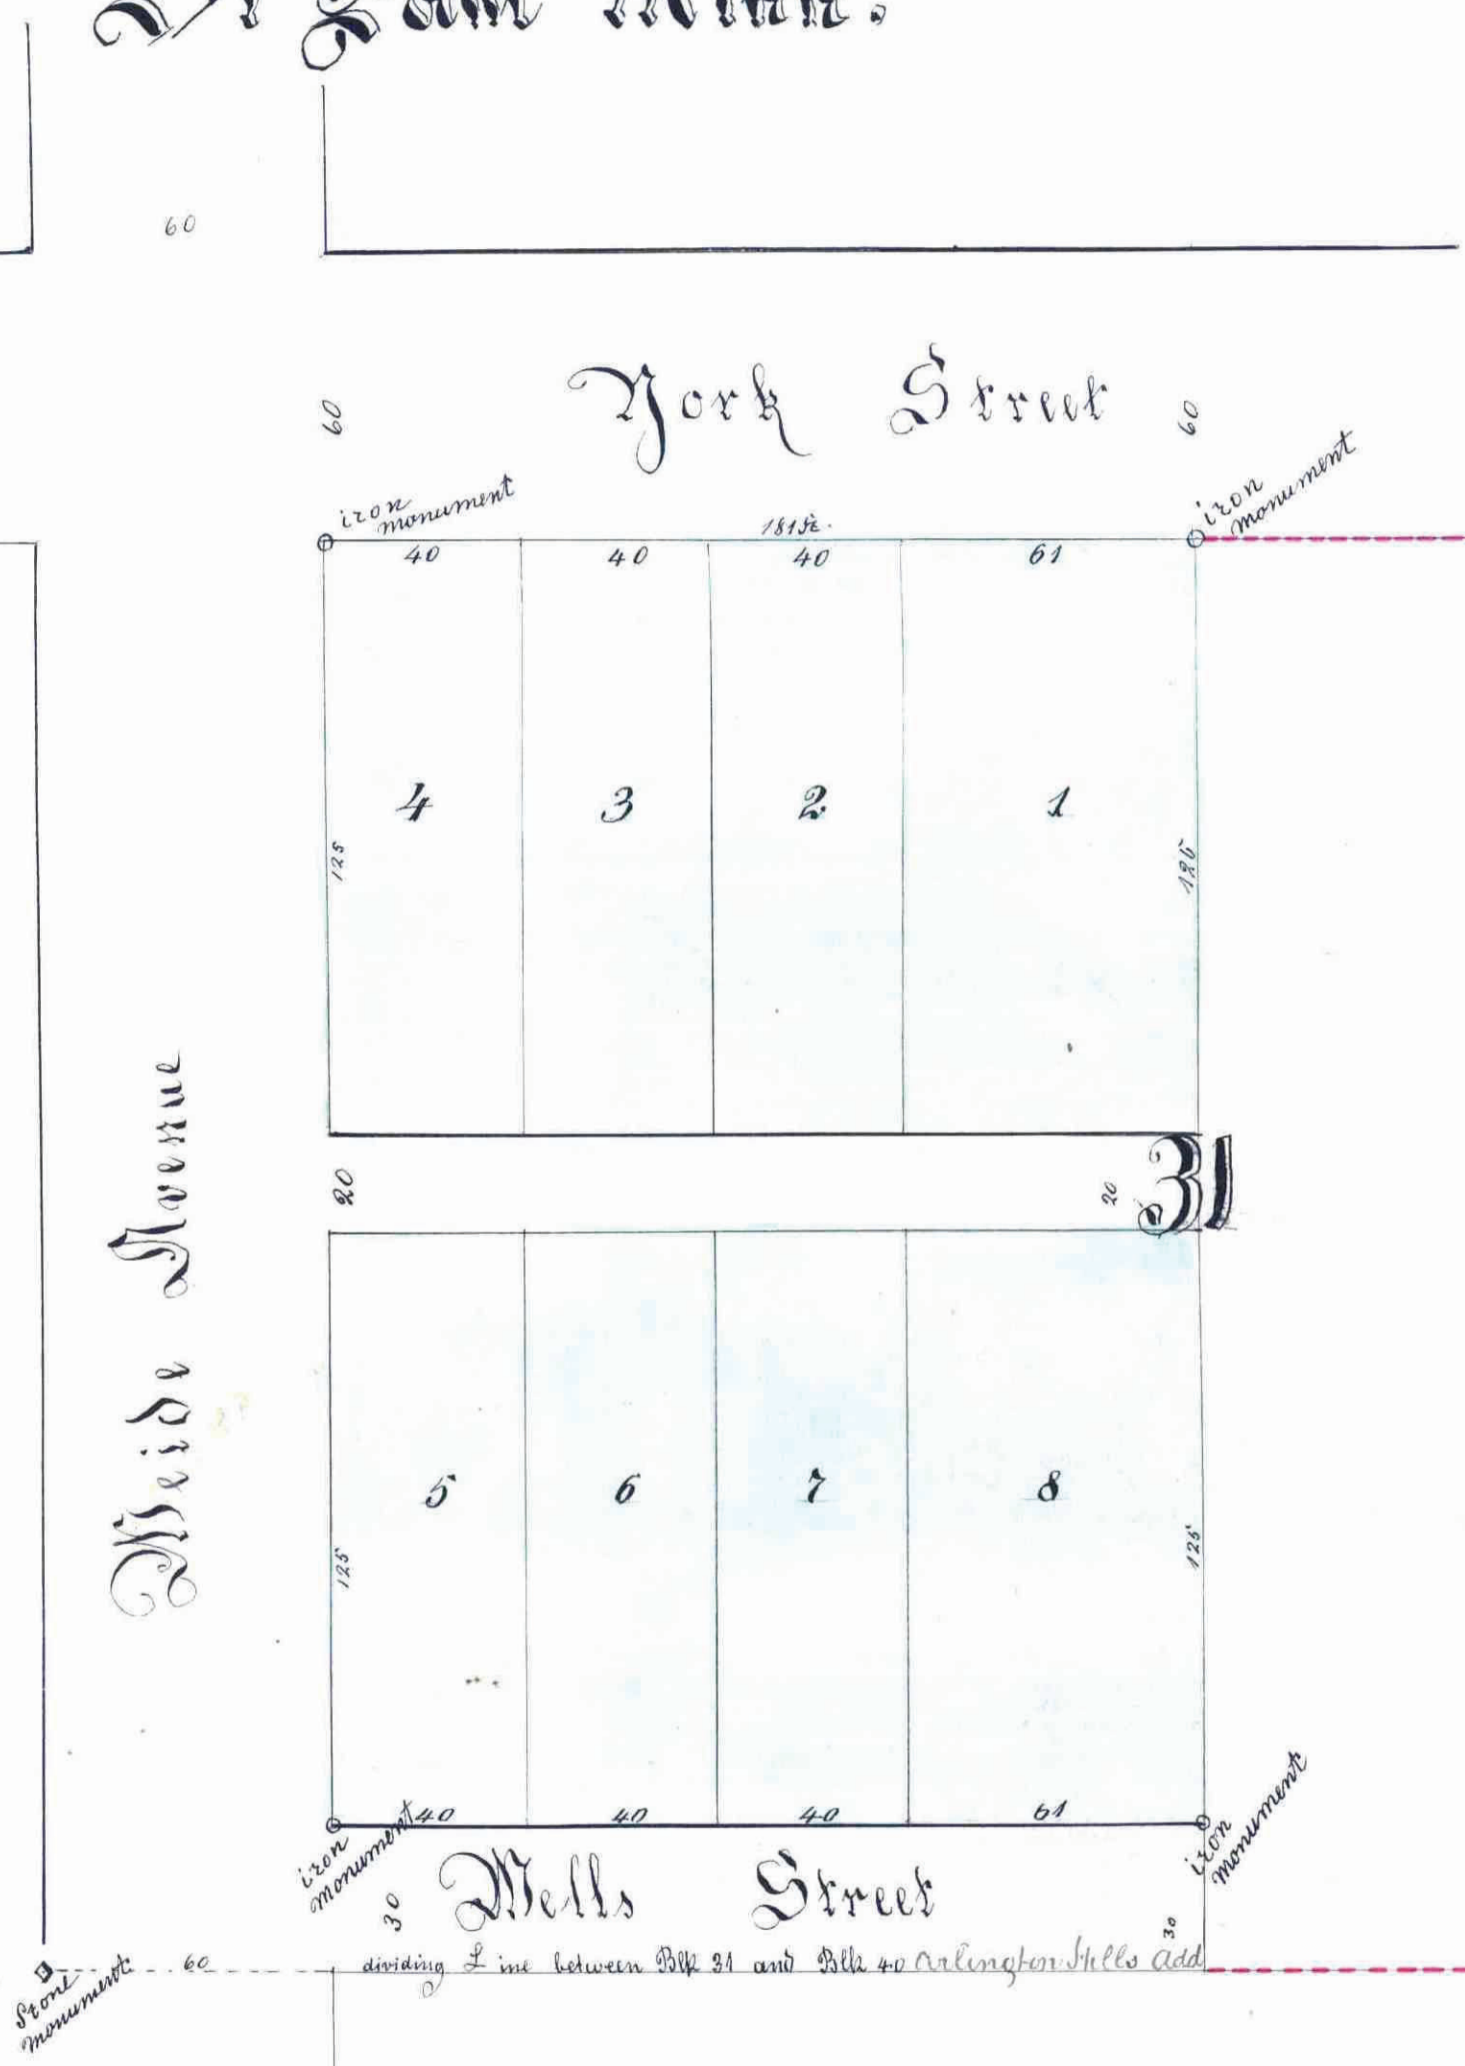 St Paul Minn.
60
York Street
60
60
iron
monument
iron
monument
181 ft.
40
40
40
61
4
3
2
1
125
125
Weide Avenue
20
20
31
5
6
7
8
125
125
40
40
40
61
iron
monument
iron
monument
30
Wells Street
30
Stone
monument
60
dividing Line between Blk 31 and Blk 40 Arlington Hills Add